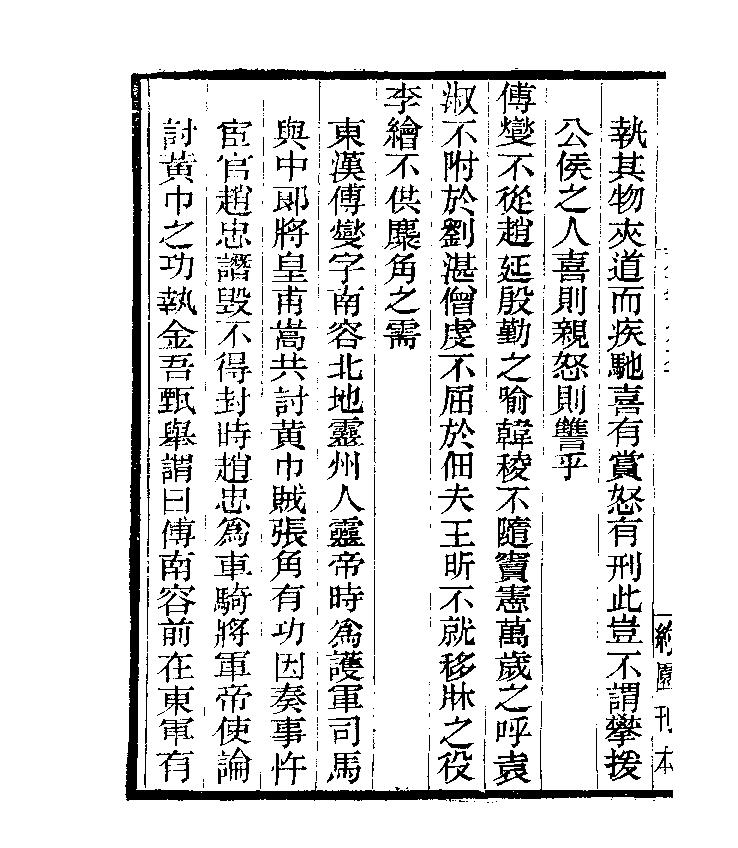 執其物夾道而疾馳喜有賞怒有刑此豈不謂攀援
公侯之人喜則親怒則讐乎
傅燮不從趙延殷勤之喻韓稜不隨竇憲萬歲之呼袁
淑不附於劉湛僧虔不屈於佃夫王昕不就移牀之役
李繪不供麋角之需
東漢傅燮字南容北地靈州人靈帝時爲護軍司馬
與中郎將皇甫嵩共討黃巾賊張角有功因奏事忤
宦官趙忠譖毀不得封時趙忠爲車騎將軍帝使論
討黃巾之功執金吾甄舉謂曰傅南容前在東軍有
約園刊本